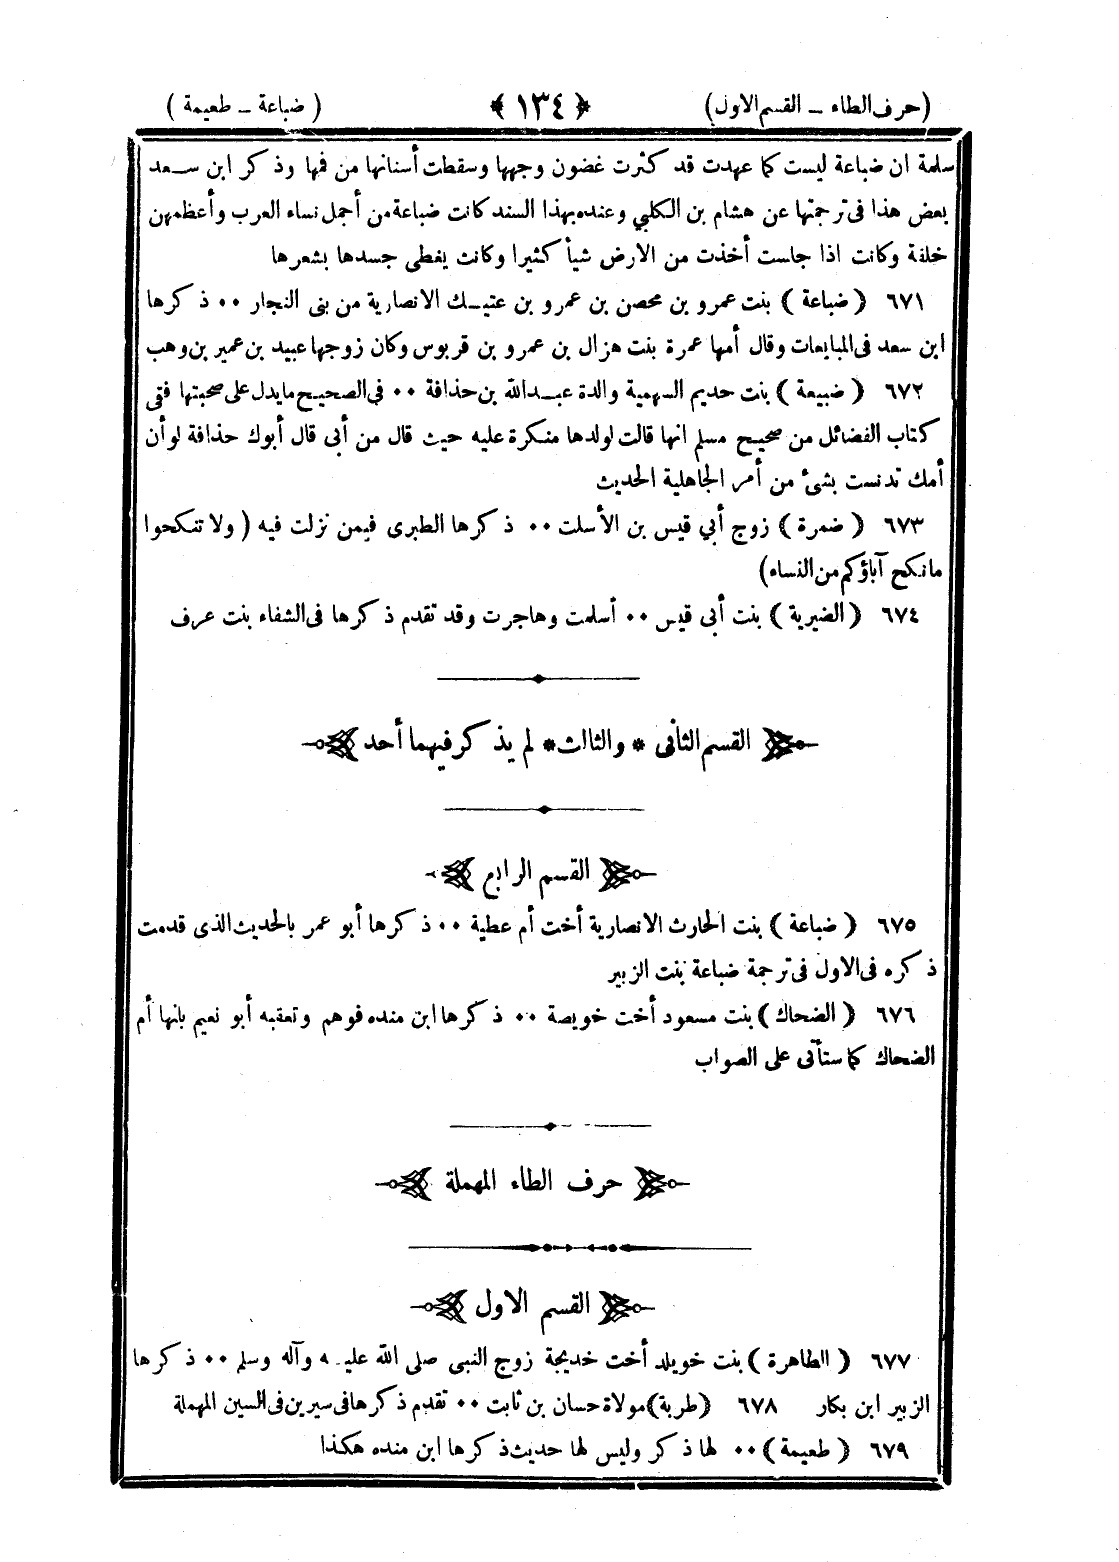 (حرف الطاء ـ القسم الاول) ﴿ ١٣٤ ﴾ ( ضباعة ـ طعيمة )
سلمة ان ضباعة ليست كما عهدت قد كثرت غضون وجهها وسقطت أسنانها من فمها وذكر ابن سـعد
بعض هذا فى ترجمتها عن هشام بن الكلبي وعنده بهذا السند كانت ضباعة من أجمل نساء العرب وأعظمهن
خلقة وكانت اذا جلست أخذت من الارض شيأ كثيرا وكانت يغطى جسدها بشعرها
٦٧١ ( ضباعة ) بنت عمرو بن محصن بن عمرو بن عتيـك الانصارية من بنى النجار ٠٠ ذكرها
ابن سعد فى المبايعات وقال أمها عمرة بنت هزال بن عمرو بن قربوس وكان زوجها عبيد بن عمير بن وهب
٦٧٢ ( ضبيعة ) بنت حديم السهمية والدة عبـدالله بن حذافة ٠٠ فى الصحيح مايدل على صحبتها ففى
كتاب الفضائل من صحيح مسلم انها قالت لولدها منكرة عليه حيث قال من أبى قال أبوك حذافة لو أن
أمك تدنست بشئ من أمر الجاهلية الحديث
٦٧٣ ( ضمرة ) زوج أبي قيس بن الأسلت ٠٠ ذكرها الطبرى فيمن نزلت فيه ( ولا تنكحوا
مانكح آباؤكم من النساء)
٦٧٤ ( الضيرية ) بنت أبى قيس ٠٠ أسلمت وهاجرت وقد تقدم ذكرها فى الشفاء بنت عرف
القسم الثانى * والثالث * لم يذكر فيهما أحد
القسم الرابع
٦٧٥ ( ضباعة ) بنت الحارث الانصارية أخت أم عطية ٠٠ ذكرها أبو عمر بالحديث الذى قدمت
ذكره فى الاول فى ترجمة ضباعة بنت الزبير
٦٧٦ ( الضحاك ) بنت مسعود أخت خويصة ٠٠ ذكرها ابن منده فوهم وتعقبه أبو نعيم بانها أم
الضحاك كما ستأتى على الصواب
حرف الطاء المهملة
القسم الاول
٦٧٧ ( الطاهرة ) بنت خويلد أخت خديجة زوج النبى صلى الله عليـه وآله وسلم ٠٠ ذكرها
الزبير ابن بكار ٦٧٨ (طربة) مولاة حسان بن ثابت ٠٠ تقدم ذكرها فى سيرين فى السين المهملة
٦٧٩ ( طعيمة ) ٠٠ لها ذكر وليس لها حديث ذكرها ابن منده هكذا